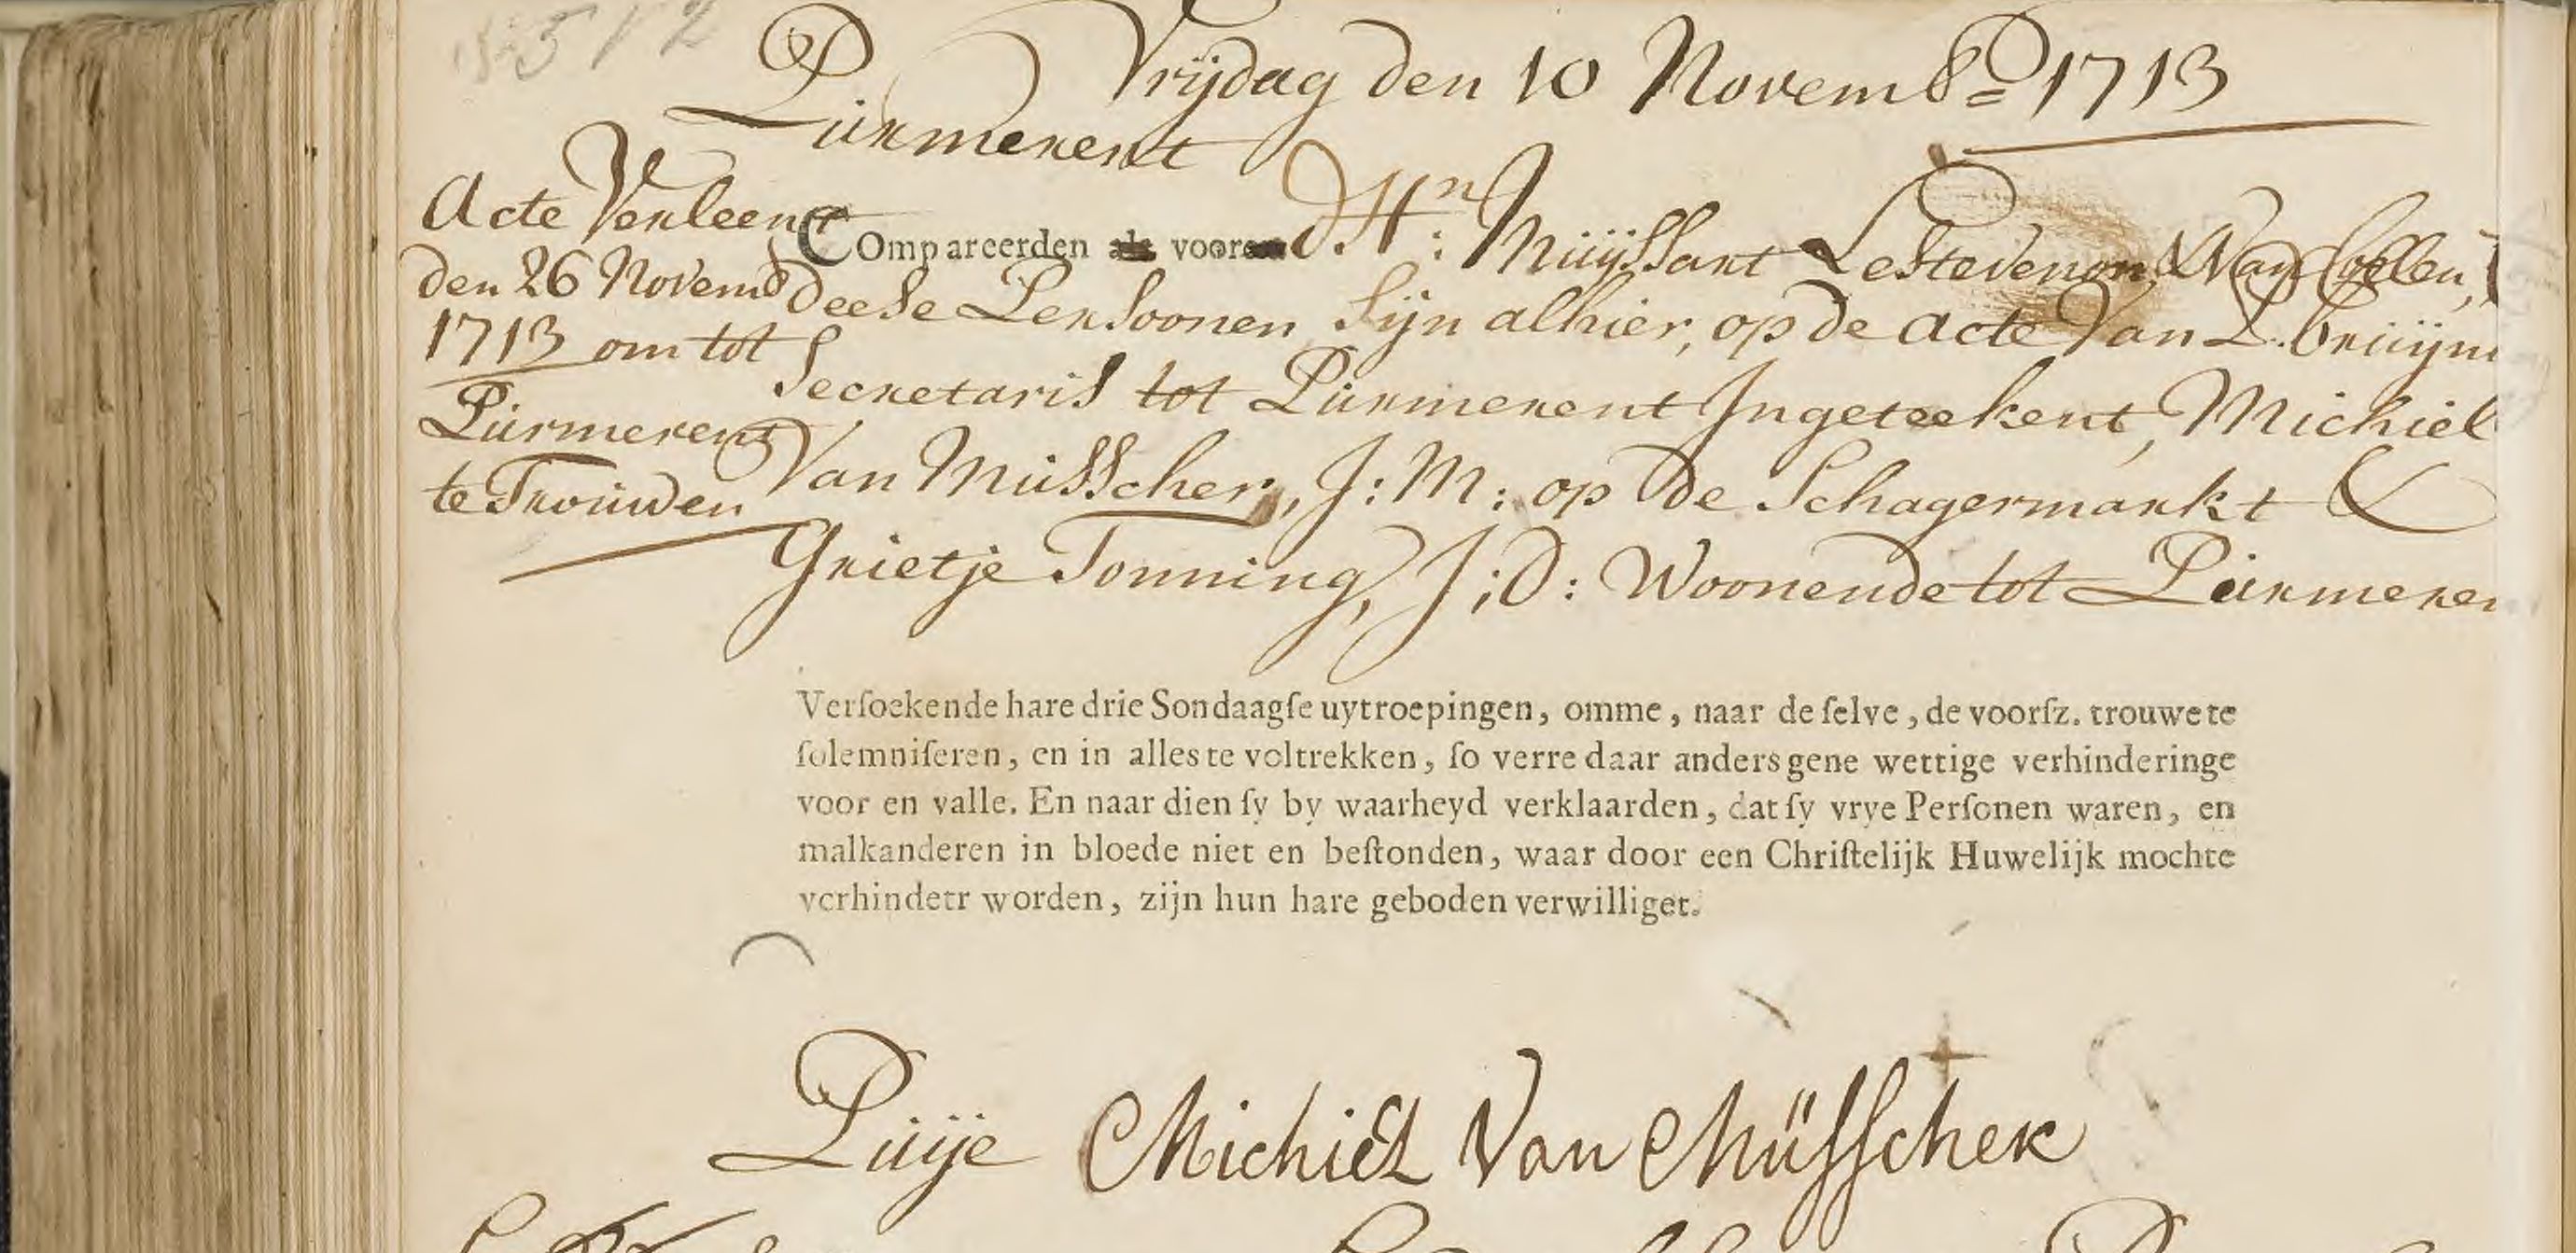 512
Vrijdag den 10 Novemb: 1713
Purmerent
Acte Verleent
den 26 Novemb
1713 om tot
Purmerent
te Trouwen
COmpareerden als vooren d'Hn: Muijssart Lestevenon & Van Collen,
deese Persoonen sijn alhier, op de acte van P. Bruijn
Secretaris tot Purmerent Ingeteekent, Michiel
Van Musscher, J: M: op de Schagermarkt &
Grietje Tonning, J: D: Woonende tot Purmeren
Verſoekende hare drie Sondaagſe uytroepingen, omme, naar de ſelve, de voorſz. trouwe te
ſolemniſeren, en in alles te voltrekken, ſo verre daar anders gene wettige verhinderinge
voor en valle. En naar dien ſy by waarheyd verklaarden, dat ſy vrye Perſonen waren, en
malkanderen in bloede niet en beſtonden, waar door een Chriſtelijk Huwelijk mochte
verhindert worden, zijn hun hare geboden verwilliget.
Puije Michiel Van Müsscher